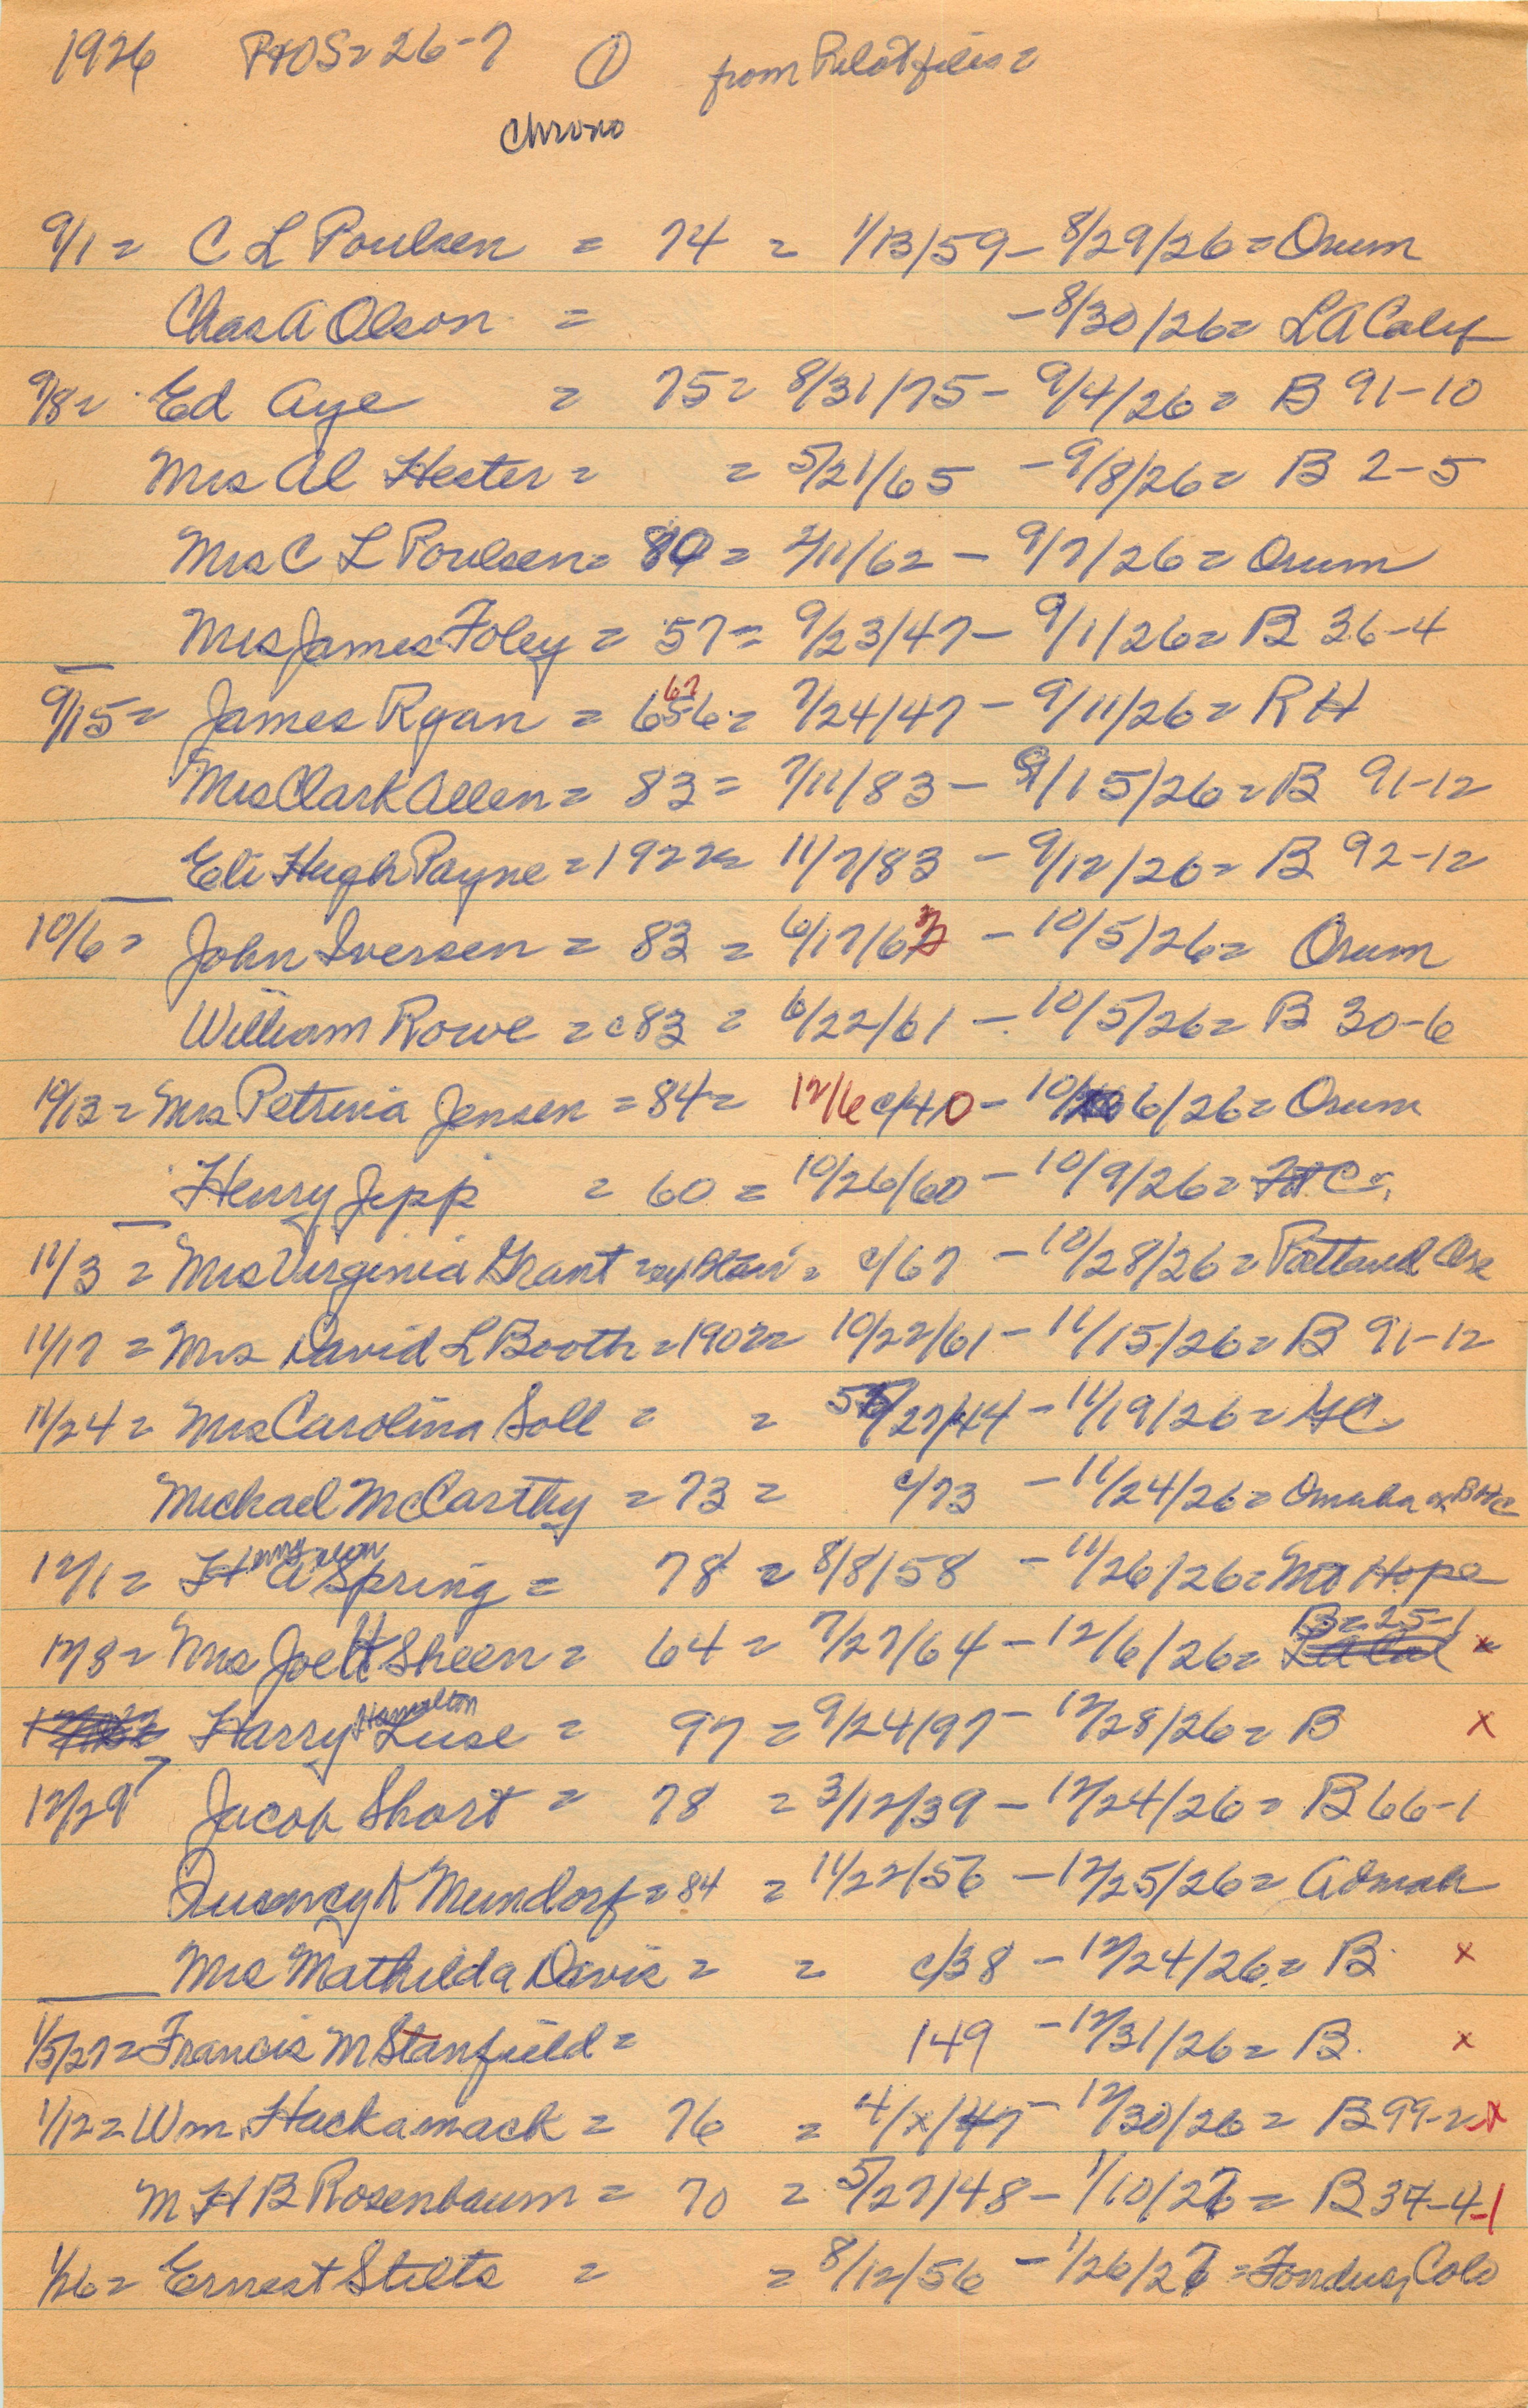 1926 PHOS= 26-7 ① from Pilot files=
Chrono
9/1= C L Poulsen = 74 = 1/13/59- 8/29/26= Orum
Chas A Olson = -8/30/26= LA Calif
9/8= Ed Aye = 75= 8/31/75- 9/4/26= B 91-10
Mrs Al Hester = = 5/21/65 -9/8/26= B 2-5
Mrs C L Poulsen= = 2/11/62 - 9/7/26= Orum
Mrs James Foley = 57= 9/23/47- 9/1/26= B 36-4
67
9/15= James Ryan = 656= 7/24/47 - 9/11/26= RH
Mrs Clark Allen = 83= 7/11/83- 9/15/26= B 91-12
Eli Hugh Payne =1922= 11/7/83 - 9/12/26= B 92-12
10/6= John Iversen = 83 = 6/17/62 -10/5/26= Orum
William Rowe = c83 = 6/22/61 -10/5/26= B 30-6
10/13= Mrs Petrina Jensen = 84= 12/6 c/40- 10/6/26= Orum
Henry Jipp = 60 = 10/26/60 -10/9/26= Ft C
11/3 = Mrs Virginia Grant = Blair = c/67 -10/28/26= Portland Ore
11/17 = Mrs David L Booth =1902= 10/22/61- 11/15/26= B 91-12
11/24 = Mrs Carolina Soll = = 5/27/44 -11/19/26=
Michael McCarthy = 73 = c/73 -11/24/26= Omaha
12/1= H A Spring = 78 = 8/8/58 -11/26/26= Mt Hope
B=25-1
12/8= Mrs Joe H Sheen = 64= 7/27/64 -12/6/26= LA Cal x
Hamilton
Harry Luse = 97 = 9/24/97- 12/28/26= B x
12/29 Jacob Short = 78 = 3/12/39 - 12/24/26= B 66-1
Quiency K Mundorf = 84 = 11/22/56 -12/25/26= Admah
Mrs Mathilda Davis = = c/38 -12/24/26= B x
1/5/27= Francis M Stanfield = 149 -12/31/26= B. x
1/12= Wm Hackamack = 76 = 4/x/47 - 12/30/26= B 99-2 x
M H B Rosenbaum = 70 = 5/27/48- 1/10/27= B 37-4-1
1/26= Ernest Stilts = = 8/12/56 -1/26/27 = Fondus, Colo